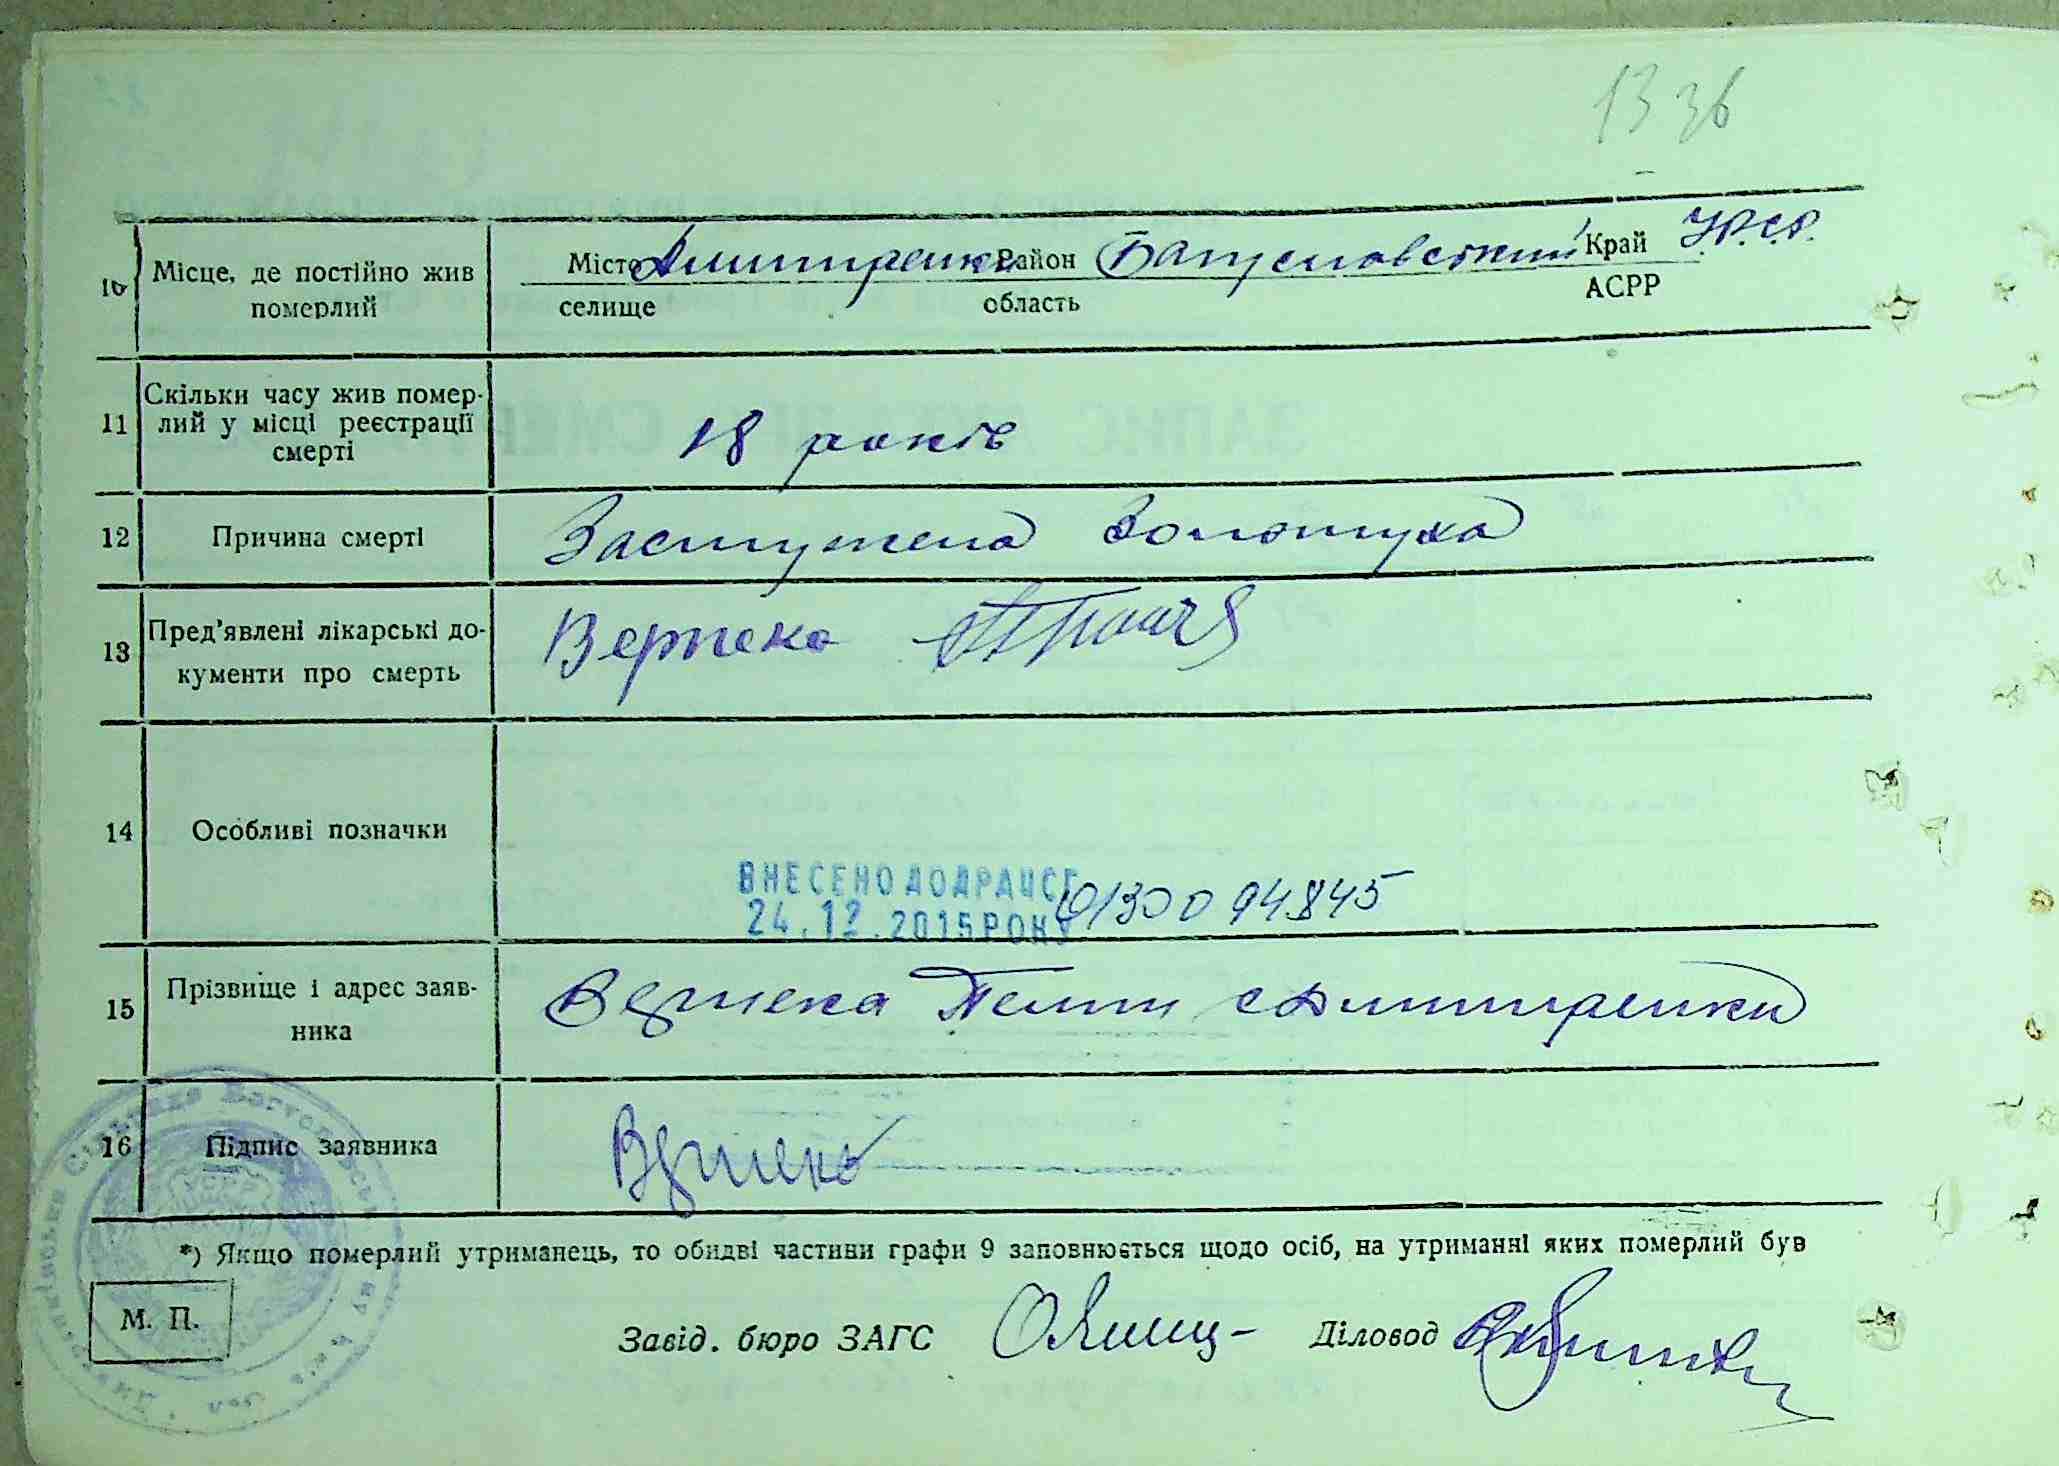 13 зв
10 Місце, де постійно жив померлий
Місто Дмитренки Район Баришовський Край УРСР
селище область АСРР
11 Скільки часу жив помер-
лий у місці реєстрації
смерті
18 років
12 Причина смерті
Застужена Золотуха
13 Пред'явлені лікарські до-
кументи про смерть
14 Особливі позначки
ВНЕСЕНО ДО ДРАЦСГ
24.12.2015 РОКУ 0130094845
15 Прізвище і адрес заяв-
ника
с Дмитренки
16 Підпис заявника
*) Якщо померлий утриманець, то обидві частини графи 9 заповнюється щодо осіб, на утриманні яких померлий був
М. П.
Завід. бюро ЗАГС Діловод